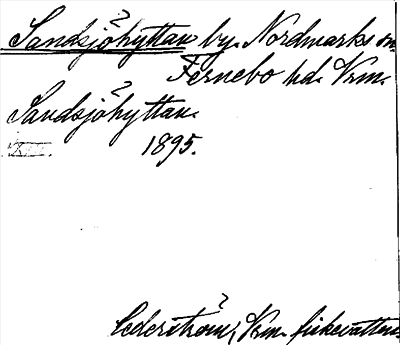 Sandsjöhyttan by. Nordmarks sn.
Fernebo hd. Vrm.
Sandsjöhyttan.
XII. 1895.
Cederström, Vrm. fiskevatten.